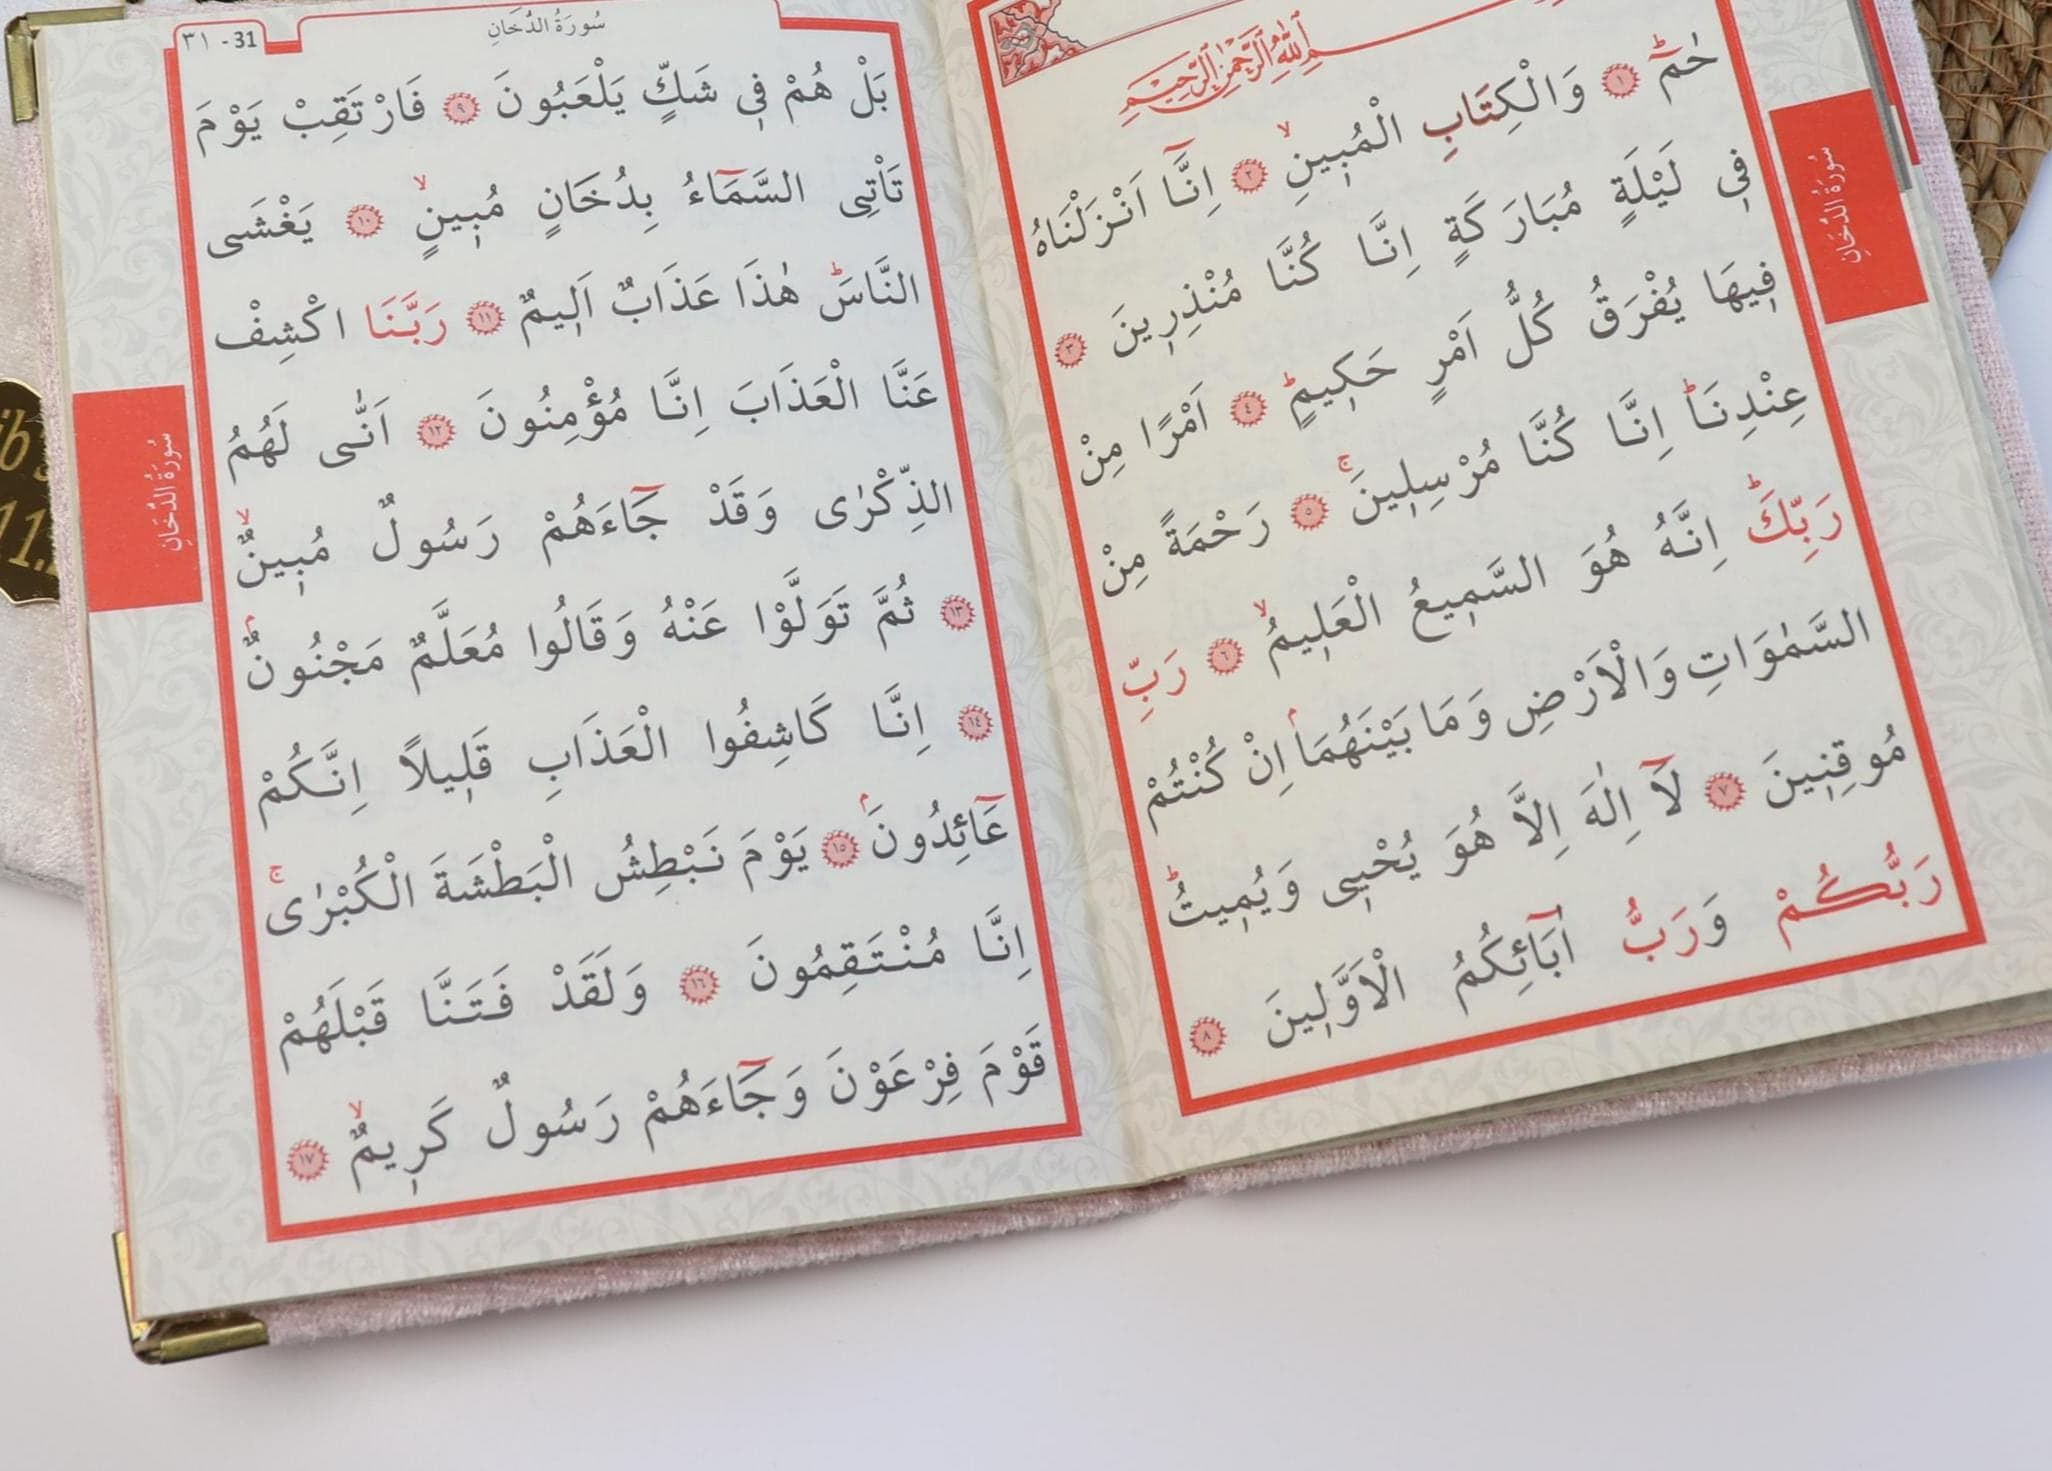 بِسْمِ اللّٰهِ الرَّحْمٰنِ الرَّحِيمِ
حٰمٓ ۚ ١ وَالْكِتَابِ الْمُبٖينِ ۙ ٢ اِنَّٓا اَنْزَلْنَاهُ
فٖى لَيْلَةٍ مُبَارَكَةٍ اِنَّا كُنَّا مُنْذِرٖينَ ٣
فٖيهَا يُفْرَقُ كُلُّ اَمْرٍ حَكٖيمٍ ۙ ٤ اَمْرًا مِنْ
عِنْدِنَا ۜ اِنَّا كُنَّا مُرْسِلٖينَ ۚ ٥ رَحْمَةً مِنْ
رَبِّكَ ۜ اِنَّهُ هُوَ السَّمٖيعُ الْعَلٖيمُ ۙ ٦ رَبِّ
السَّمٰوَاتِ وَالْاَرْضِ وَمَا بَيْنَهُمَا ۘ اِنْ كُنْتُمْ
مُوقِنٖينَ ٧ لَٓا اِلٰهَ اِلَّا هُوَ يُحْيٖى وَيُمٖيتُ ۜ
رَبُّكُمْ وَرَبُّ اٰبَٓائِكُمُ الْاَوَّلٖينَ ٨
سُورَةُ الدُّخَانِ
٣١ - 31
سُورَةُ الدُّخَانِ
بَلْ هُمْ فٖى شَكٍّ يَلْعَبُونَ ٩ فَارْتَقِبْ يَوْمَ
تَاْتِى السَّمَٓاءُ بِدُخَانٍ مُبٖينٍ ۙ ١٠ يَغْشَى
النَّاسَ ۜ هٰذَا عَذَابٌ اَلٖيمٌ ١١ رَبَّنَا اكْشِفْ
عَنَّا الْعَذَابَ اِنَّا مُؤْمِنُونَ ١٢ اَنّٰى لَهُمُ
الذِّكْرٰى وَقَدْ جَٓاءَهُمْ رَسُولٌ مُبٖينٌ ۙ
١٣ ثُمَّ تَوَلَّوْا عَنْهُ وَقَالُوا مُعَلَّمٌ مَجْنُونٌ ۘ
١٤ اِنَّا كَاشِفُوا الْعَذَابِ قَلٖيلًا اِنَّكُمْ
عَٓائِدُونَ ۘ ١٥ يَوْمَ نَبْطِشُ الْبَطْشَةَ الْكُبْرٰى ۚ
اِنَّا مُنْتَقِمُونَ ١٦ وَلَقَدْ فَتَنَّا قَبْلَهُمْ
قَوْمَ فِرْعَوْنَ وَجَٓاءَهُمْ رَسُولٌ كَرٖيمٌ ۙ ١٧
سُورَةُ الدُّخَانِ